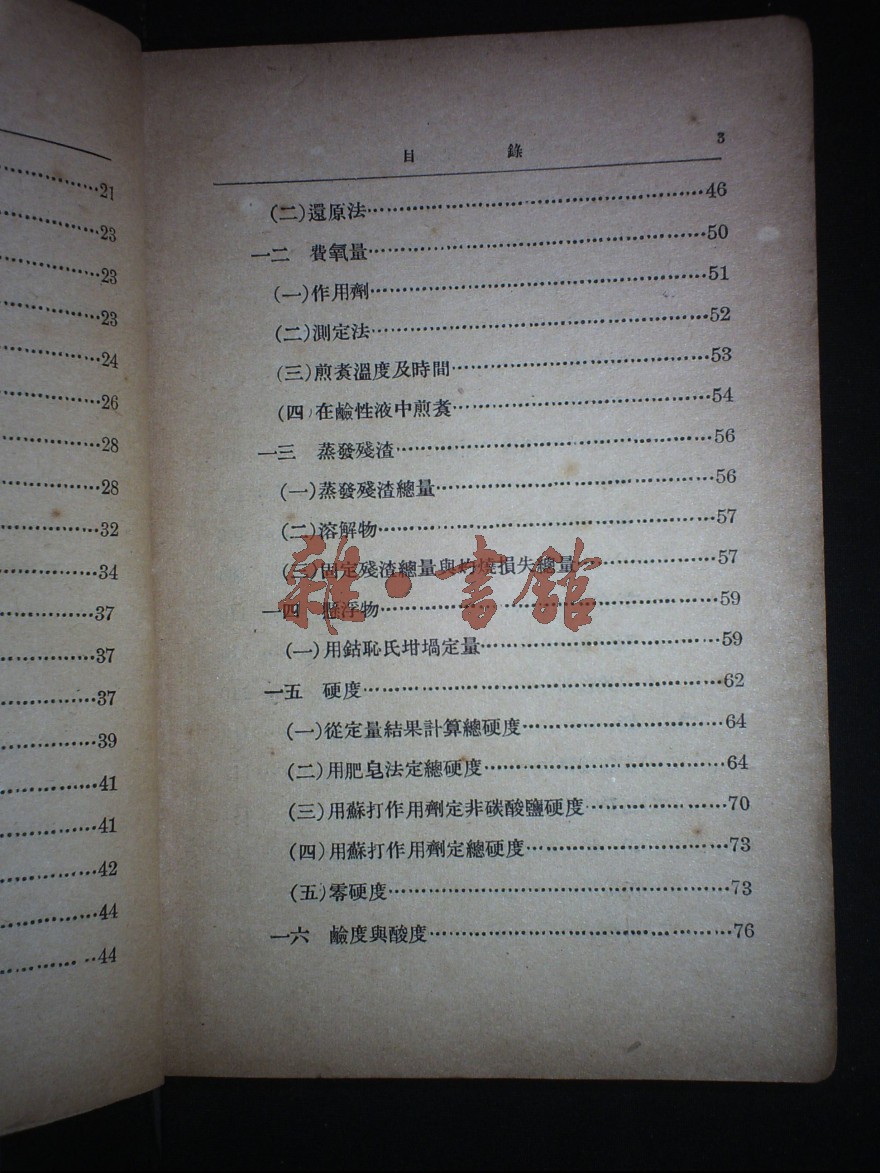 21
23
23
23
24
26
28
28
32
34
37
37
37
39
41
41
42
44
44
目 錄 3
(二)還原法…46
一二 費氧量…50
(一)作用劑…51
(二)測定法…52
(三)煎煮溫度及時間…53
(四)在鹼性液中煎煮…54
一三 蒸發殘渣…56
(一)蒸發殘渣總量…56
(二)溶解物…57
(三)固定殘渣總量與灼燒損失總量…57
一四 懸浮物…59
(一)用鈷恥氏坩堝定量…59
一五 硬度…62
(一)從定量結果計算總硬度…64
(二)用肥皂法定總硬度…64
(三)用蘇打作用劑定非碳酸鹽硬度…70
(四)用蘇打作用劑定總硬度…73
(五)零硬度…73
一六 鹼度與酸度…76
雜·書館